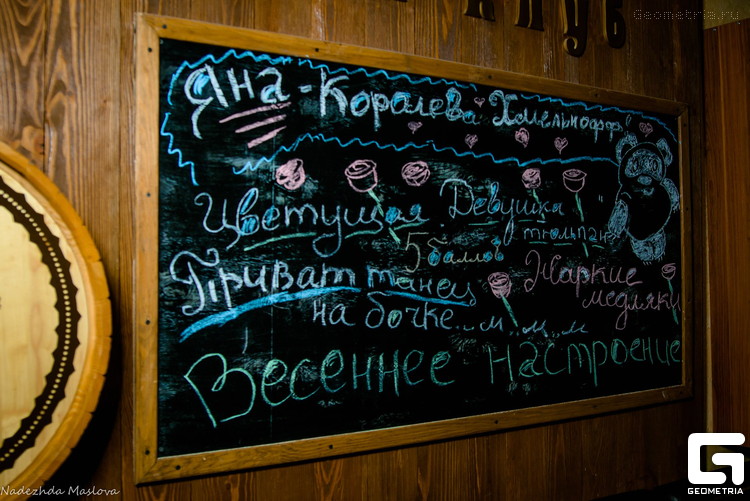 клуб
Geometria.ru
Яна - Королева Хмельнофф
Цветущая Девушка
тюльпан
5 баллов
Приват танец
на бочке.. м.. м.. м
Жаркие
медляки
Весеннее настроение
Nadezhda Maslova
GEOMETRIA